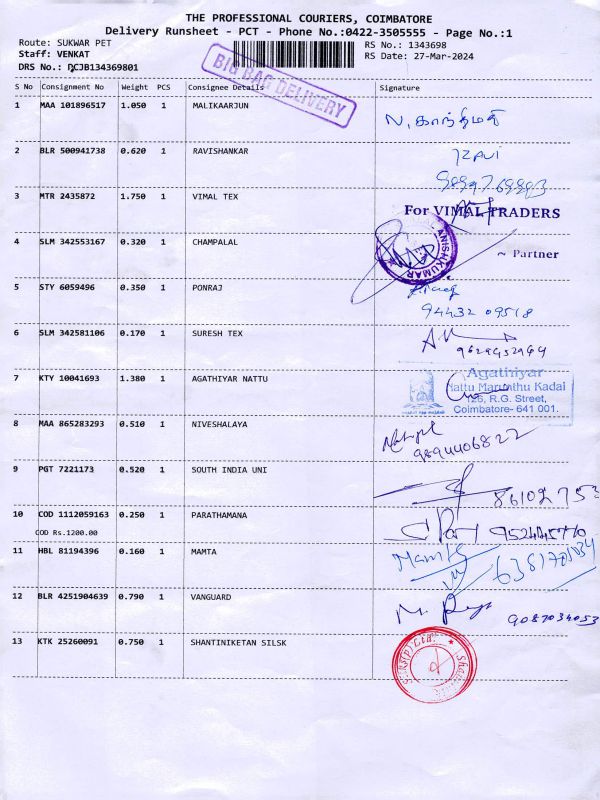 THE PROFESSIONAL COURIERS, COIMBATORE
Delivery Runsheet - PCT - Phone No.:0422-3505555 - Page No.:1
Route: SUKWAR PET
RS No.: 1343698
Staff: VENKAT
RS Date: 27-Mar-2024
DRS No.: DCJB134369801
BIG BAG DELIVERY
S No Consignment No Weight PCS Consignee Details Signature
1 MAA 101896517 1.050 1 MALIKAARJUN
N. காந்திமதி
2 BLR 500941738 0.620 1 RAVISHANKAR
RAVI
3 MTR 2435872 1.750 1 VIMAL TEX
For VIMAL TRADERS
4 SLM 342553167 0.320 1 CHAMPALAL
ANISHKUMAR
~ Partner
5 STY 6059496 0.350 1 PONRAJ
94432 09518
6 SLM 342581106 0.170 1 SURESH TEX
9629452944
7 KTY 10041693 1.380 1 AGATHIYAR NATTU
Agathiyar
Nattu Marunthu Kadai
125, R.G. Street,
Coimbatore- 641 001.
8 MAA 865283293 0.510 1 NIVESHALAYA
9894406822
9 PGT 7221173 0.520 1 SOUTH INDIA UNI
86102753
10 COD 1112059163 0.250 1 PARATHAMANA
COD Rs.1200.00
11 HBL 81194396 0.160 1 MAMTA
Mamta
6381701034
12 BLR 4251904639 0.790 1 VANGUARD
9087034053
13 KTK 25260091 0.750 1 SHANTINIKETAN SILSK